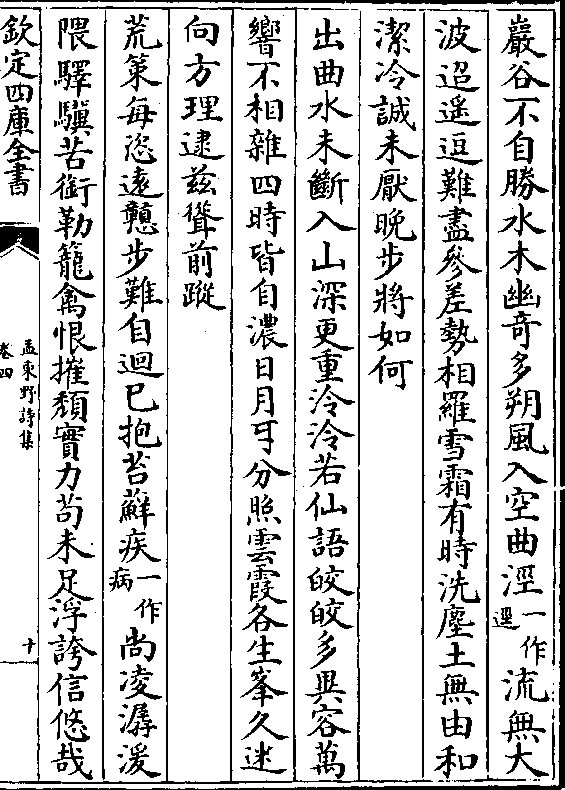 巖谷不自勝水木幽奇多朔風入空曲涇一作逕流無大
波迢遥逗難盡參差勢相羅雪霜有時洗塵土無由和
潔泠誠未厭晚步將如何
出曲水未斷入山深更重泠泠若仙語皎皎多異容萬
響不相雜四時皆自濃日月可分照雲霞各生峯久迷
向方理逮兹聳前蹤
荒策每恣遠戇步難自迴已抱苔蘚疾一作病尚凌潺湲
隈驛驥苦銜勒籠禽恨摧頹實力苟未足浮誇信悠哉
欽定四庫全書
孟東野詩集
卷四
十